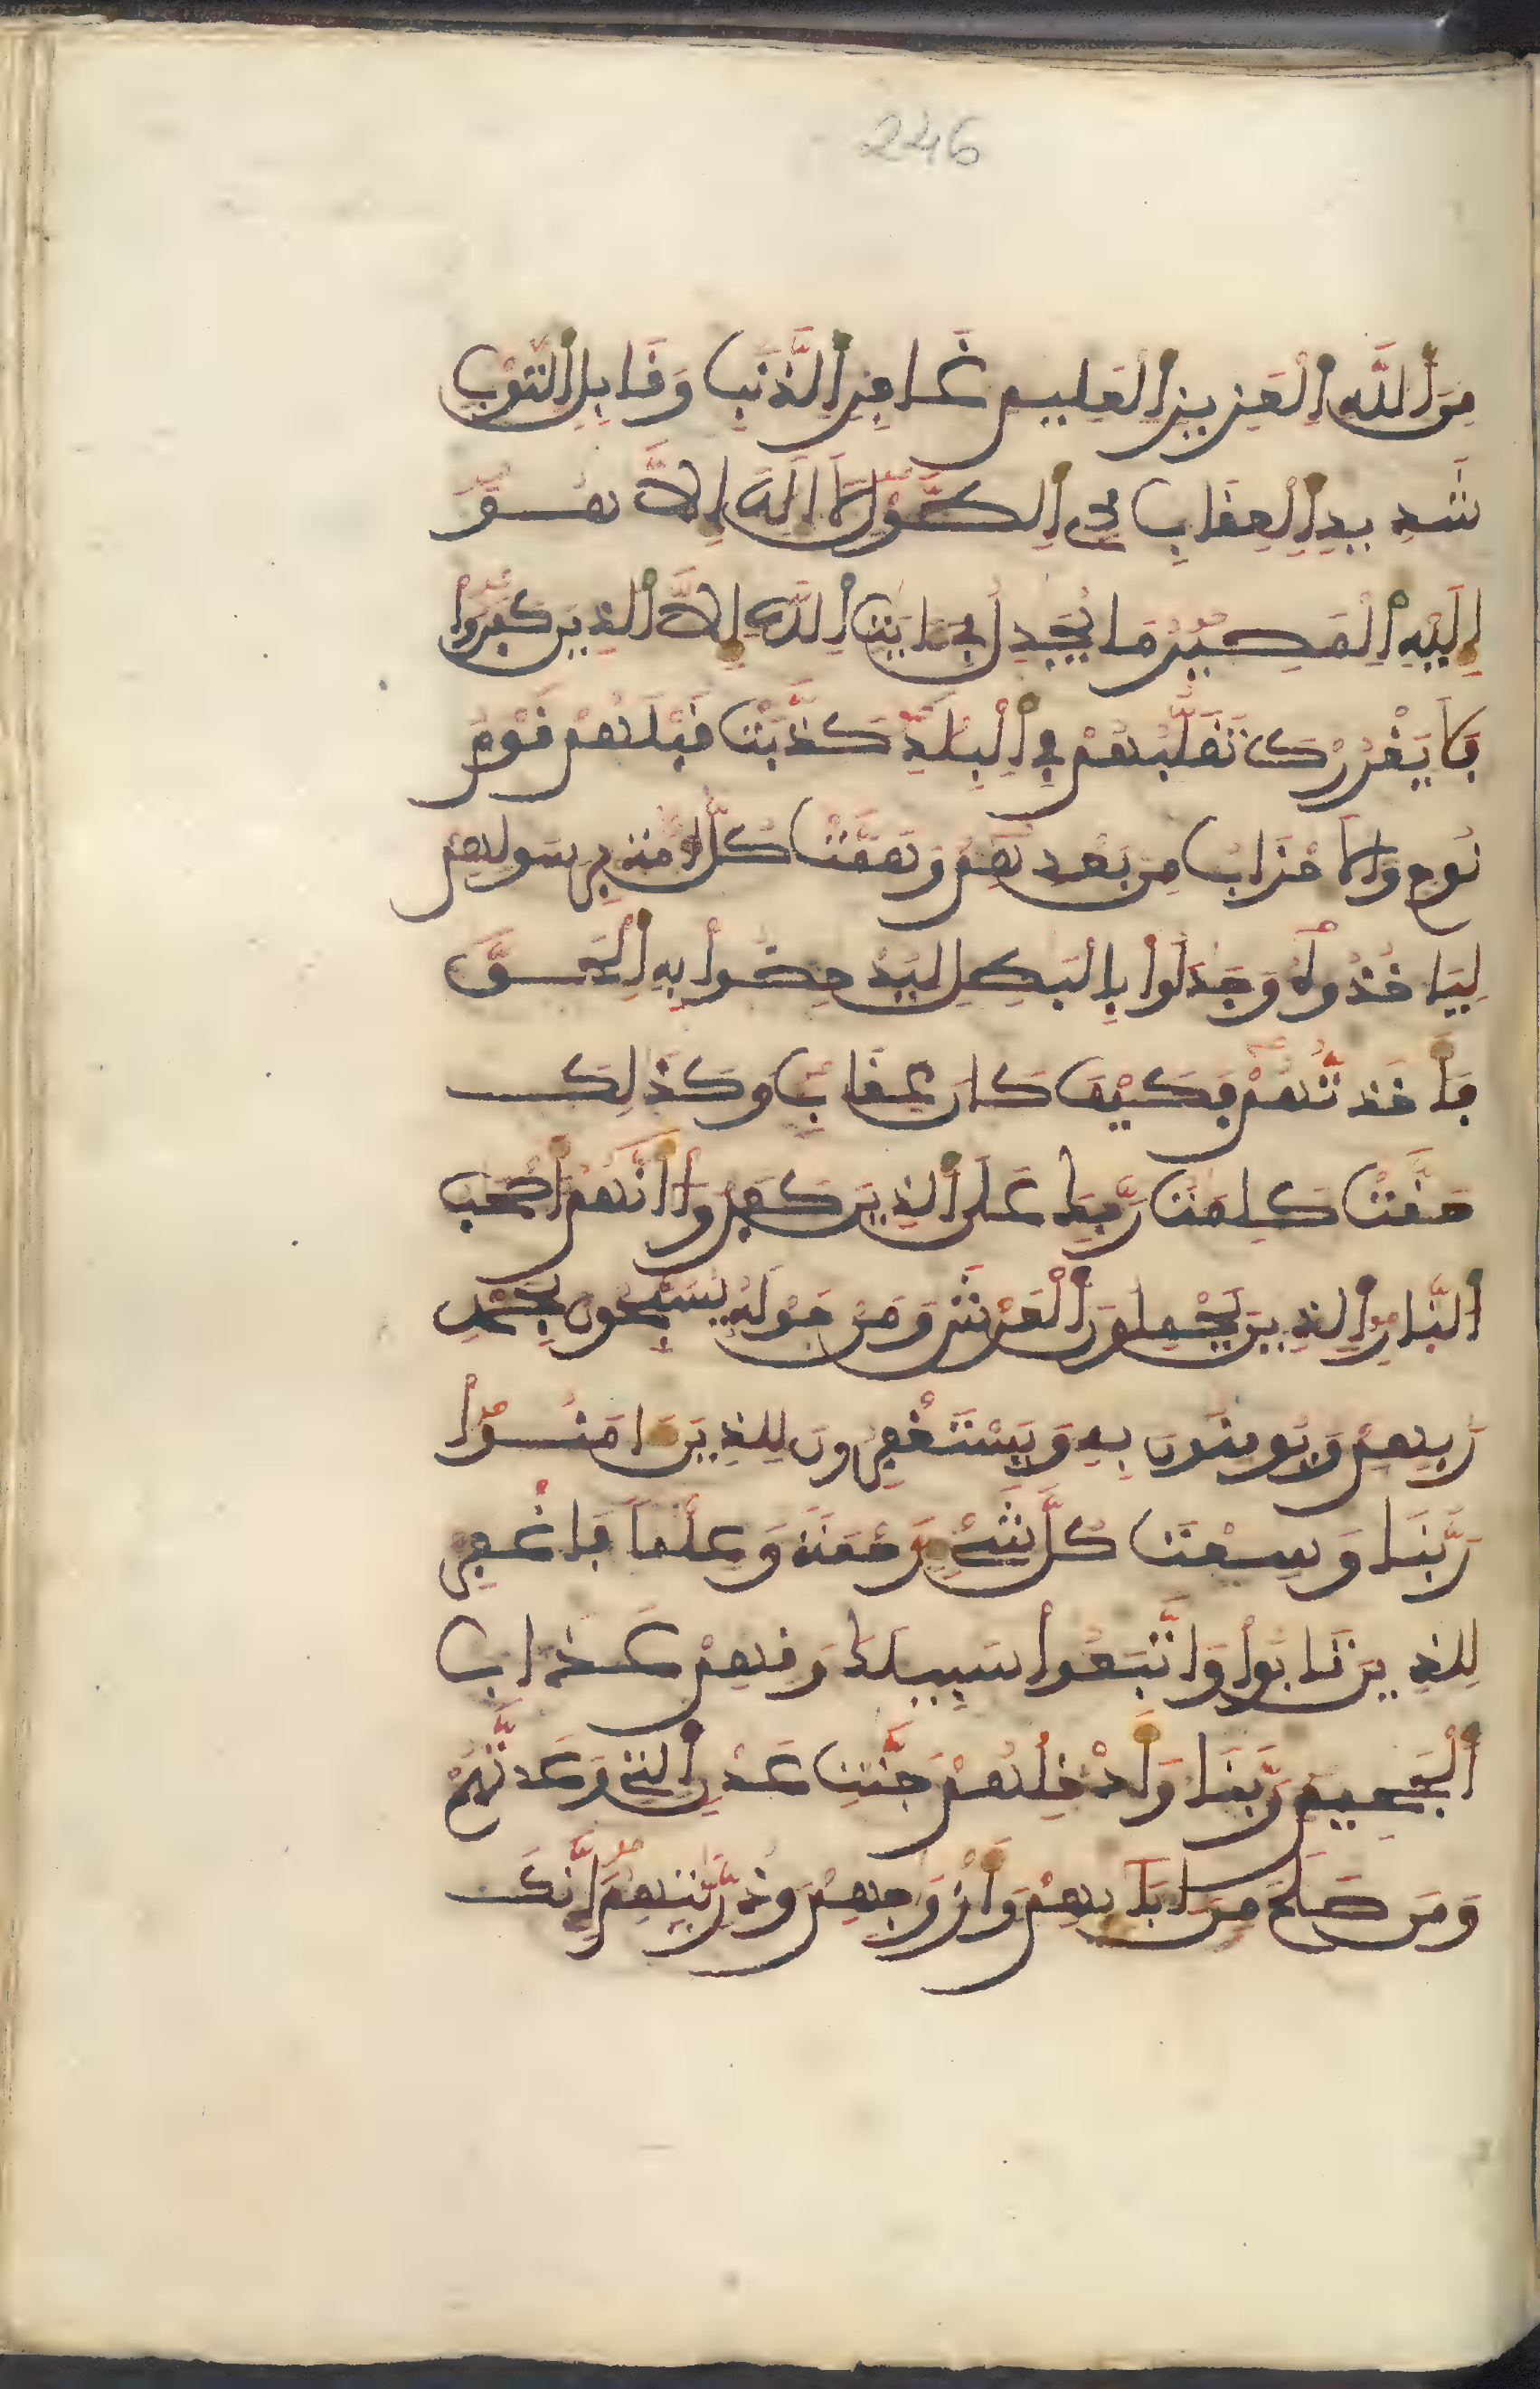 246
مِنَ اَللَّهِ اِلْعَزِيزِ اِلْعَلِيمِ غَافِرِ اِلذَّنۢبِ وَقَابِلِ اِلتَّوْبِ
شَدِيدِ اِلْعِقَابِ ذِے اِلطَّوْلِ لَآ إِلَٰهَ إِلَّا هُوَ
إِلَيْهِ اِلْمَصِيرُ مَا يُجَٰدِلُ فِےٓ ءَايَٰتِ اِللَّهِ إِلَّا اَلذِينَ كَفَرُواْ
فَلَا يَغْرُرْكَ تَقَلُّبُهُمْ فِے اِلْبِلَٰدِ كَذَّبَتْ قَبْلَهُمْ قَوْمُ
نُوحٍ وَالَاحْزَابُ مِنۢ بَعْدِهِمْ وَهَمَّتْ كُلُّ أُمَّةِۢ بِرَسُولِهِمْ
لِيَاخُذُوهُ وَجَٰدَلُواْ بِالْبَٰطِلِ لِيُدْحِضُواْ بِهِ اِلْحَقَّ
فَأَخَذتُّهُمْ فَكَيْفَ كَانَ عِقَابِ وَكَذَٰلِكَ
حَقَّتْ كَلِمَٰتُ رَبِّكَ عَلَى اَلذِينَ كَفَرُواْ أَنَّهُمُۥٓ أَصْحَٰبُ
اُلنَّارِ اِلذِينَ يَحْمِلُونَ اَلْعَرْشَ وَمَنْ حَوْلَهُۥ يُسَبِّحُونَ بِحَمْدِ
رَبِّهِمْ وَيُومِنُونَ بِهِۦ وَيَسْتَغْفِرُونَ لِلذِينَ ءَامَنُواْ
رَبَّنَا وَسِعْتَ كُلَّ شَےْءٖ رَّحْمَةٗ وَعِلْماٗ فَاغْفِرْ
لِلذِينَ تَابُواْ وَاتَّبَعُواْ سَبِيلَكَ وَقِهِمْ عَذَابَ
اَلْجَحِيمِ رَبَّنَا وَأَدْخِلْهُمْ جَنَّٰتِ عَدْنٍ اِلتِے وَعَدتَّهُمْ
وَمَن صَلَحَ مِنَ ابَآئِهِمْ وَأَزْوَٰجِهِمْ وَذُرِّيَّٰتِهِمُۥٓ إِنَّكَ